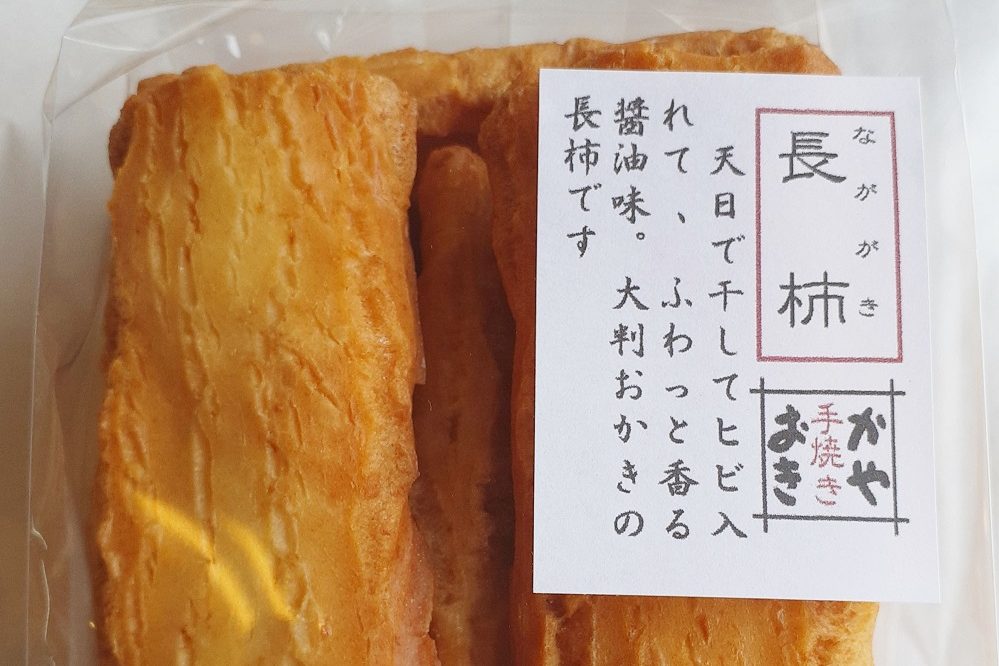 なががき
長柿
かや
手焼き
おき
天日で干してヒビ入
れて、ふわっと香る
醤油味。大判おかきの
長柿です